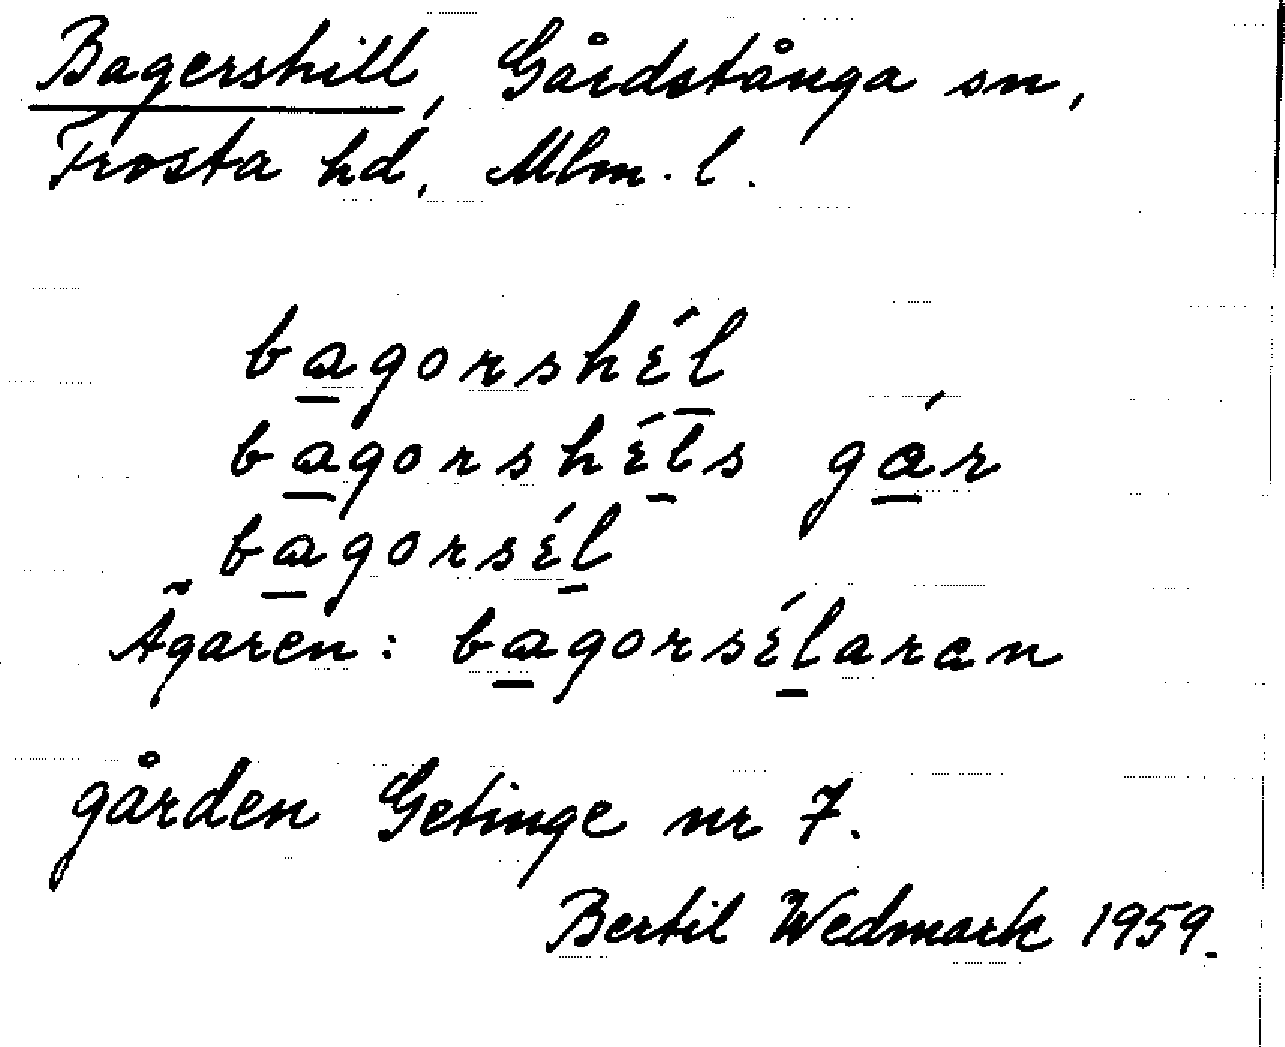 Bagershill, Gårdstånga sn,
Frosta hd, Mlm. l.
bagorshɛ́l
bagorshɛ́ls gár
bagorsɛ́l
Ägaren: bagorsɛ́laran
gården Getinge nr 7.
Bertil Wedmark 1959.